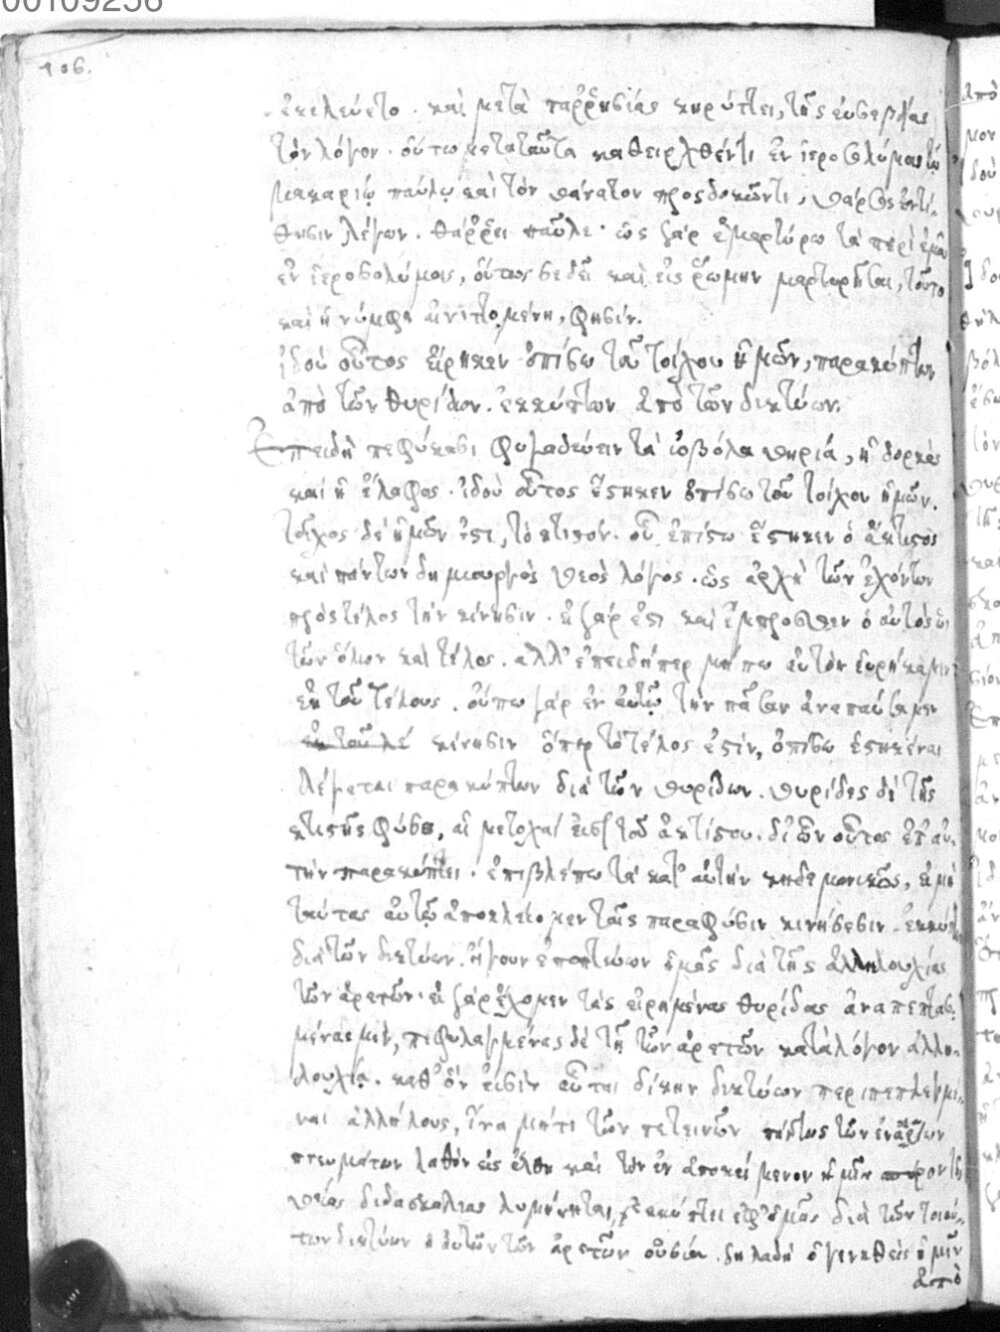 00109256
106.
ἐκελεύετο. καὶ μετὰ παρρησίας κηρύττει, τῆς εὐσεβείας
τὸν λόγον. οὕτω μετὰ ταῦτα καθειρχθέντι ἐν ἱεροσολύμοις τῷ
μακαρίῳ παύλῳ καὶ τὸν θάνατον προσδοκῶντι, θάρσος ἐντί-
θησιν λέγων. θάρρει παῦλε· ὡς γὰρ ἐμαρτύρω τὰ περὶ ἐμοῦ
ἐν ἱεροσολύμοις, οὕτως σε δεῖ καὶ εἰς ῥώμην μαρτυρῆσαι, τοῦτο
καὶ ἡ νύμφη αἰνιττομένη, φησίν.
ἰδοὺ οὗτος εἵρηκεν ὀπίσω τοῦ τοίχου ἡμῶν, παρακύπτων
ἀπὸ τῶν θυρίδων. ἐκκύπτων ἀπὸ τῶν δικτύων.
Ἐπειδὴ πεφύκασι φυγαδεύειν τὰ ἰοβόλα θηρία, ἡ δορκὰς
καὶ ἡ ἔλαφος. ἰδοὺ οὗτος ἕστηκεν ὀπίσω τοῦ τοίχου ἡμῶν.
τοῖχος δὲ ἡμῶν ἐστι, τὸ κτιστόν. οὗ ὀπίσω ἕστηκεν ὁ ἄκτιστος
καὶ πάντων δημιουργὸς θεὸς λόγος. ὡς ἀρχὴ τῶν ἐχόντων
πρὸς τέλος τὴν κίνησιν. εἰ γάρ ἐστι καὶ ἔμπροσθεν ὁ αὐτὸς ὡς
τῶν ὅλων καὶ τέλος. ἀλλ' ἐπειδήπερ μήπω αὐτὸν εὑρήκαμεν
ἐκ τοῦ τέλους. οὔπω γὰρ ἐν αὐτῷ τὴν πᾶσαν ἀναπαύσαμεν
κίνησιν ὅπερ τὸ τέλος ἐστίν, ὀπίσω ἑστηκέναι
λέγεται παρακύπτων διὰ τῶν θυρίδων. θυρίδες δὲ τῆς
κτιστῆς φύσεως, αἱ μετοχαί εἰσι τοῦ ἀκτίστου. δι' ὧν οὗτος ἐπ' αὐ-
τὴν παρακύπτει. ἐπιβλέπω τὰ κατ' αὐτὴν κηδεμονικῶς, εἰ μὴ
ταύτας αὐτῷ ἀποκλείομεν ταῖς παραφύσιν κινήσεσιν. ἐκκύπτων
διὰ τῶν δικτύων. ἤγουν ἐποπτεύων ἡμᾶς διὰ τῆς ἀλληλουχίας
τῶν ἀρετῶν. εἰ γὰρ ἔχομεν τὰς εἰρημένας θυρίδας ἀναπεπτασ-
μένας μὲν, πεφυλαγμένας δὲ τῇ τῶν ἀρετῶν κατὰ λόγον ἀλλη-
λουχίᾳ. καθ' ὃν εἰσὶν αὗται δίκην δικτύων περιπεπλεγμέ-
ναι ἀλλήλους, ἵνα μήτι τῶν πετεινῶν πάντως τῶν ἐναερίων
πνευμάτων λαθὸν εἰς ἔλθῃ καὶ τὸν ἐναποκείμενον ἡμῖν
θείας διδασκαλίας λυμήνηται, ἐκκύπτει ἐφ' ἡμᾶς διὰ τῶν τοιού-
των δικτύων ἡ αὐτῶν τῶν ἀρετῶν οὐσία. δηλαδὴ ὁ γενηθεὶς ἡμῖν
ἀπὸ